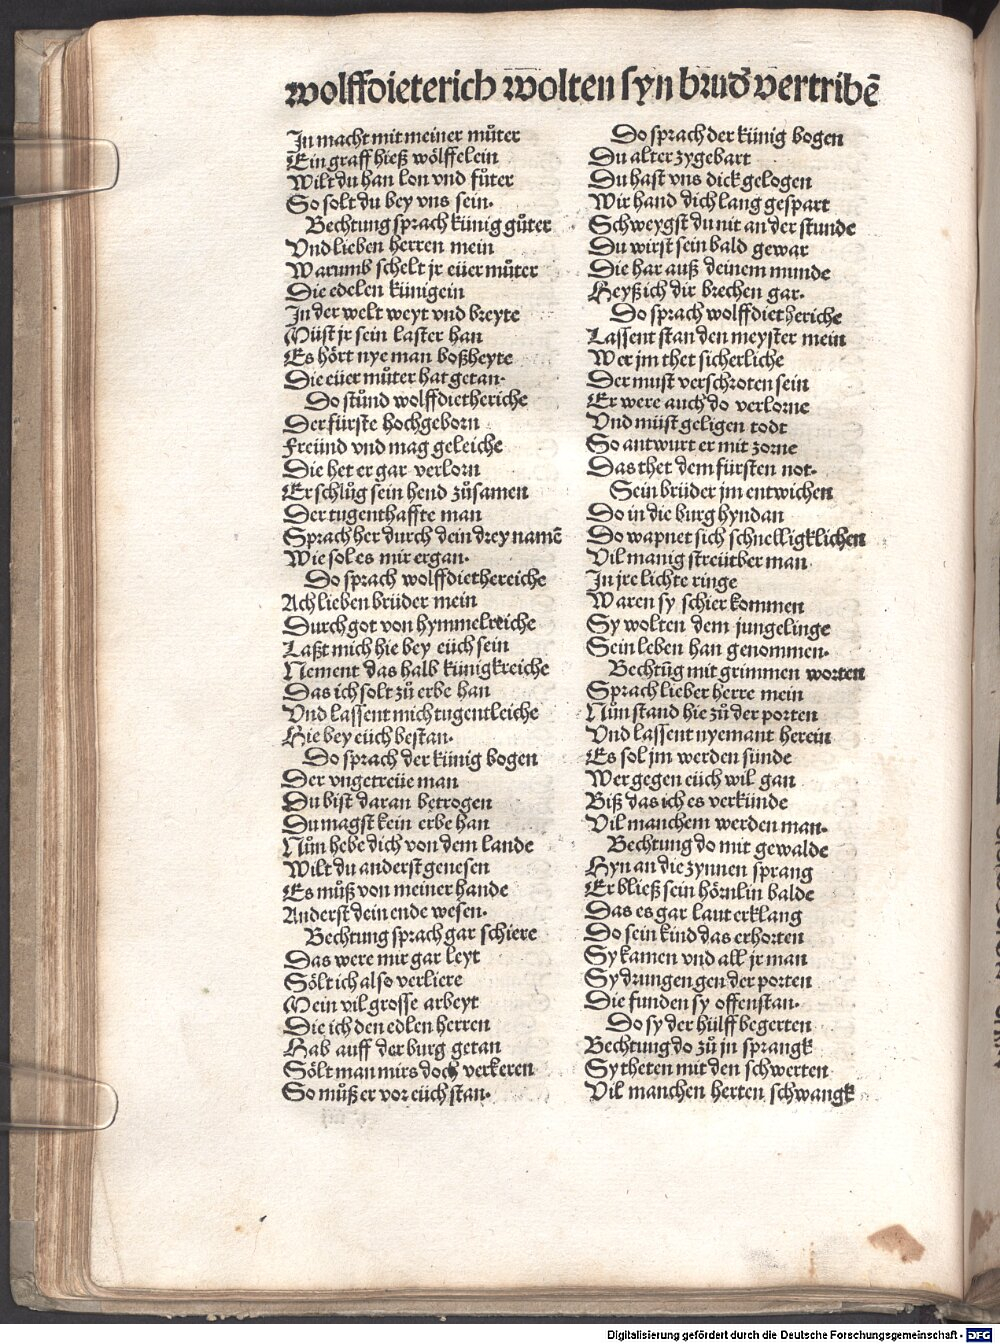 wolffdieterich wolten syn brud̄ vertribē
In macht mit meiner můter
Ein graff hieß wölffelein
Wilt du han lon vnd fůter
So solt du bey vns sein.
Bechtung sprach künig gůter
Vnd lieben herren mein
Warumb schelt jr eüer můter
Die edelen künigein
In der welt weyt vnd breyte
Müst jr sein laster han
Es hört nye man boßheyte
Die eüer můter hat getan.
Do stůnd wolffdietheriche
Der fürste hochgeborn
Freünd vnd mag geleiche
Die het er gar verlorn
Er schlůg sein hend zůsamen
Der tugenthaffte man
Sprach her durch dein drey namē
Wie sol es mir ergan.
Do sprach wolffdiethereiche
Ach lieben brüder mein
Durch got von hymmelreiche
Laßt mich hie bey eüch sein
Nement das halb künigkreiche
Das ich solt zů erbe han
Vnd lassent mich tugentleiche
Hie bey eüch bestan.
Do sprach der künig bogen
Der vngetreüe man
Du bist daran betrogen
Du magst kein erbe han
Nůn hebe dich von dem lande
Wilt du anderst genesen
Es můß von meiner hande
Anderst dein ende wesen.
Bechtung sprach gar schiere
Das were mir gar leyt
Sölt ich also verliere
Mein vil grosse arbeyt
Die ich den edlen herren
Hab auff der burg getan
Sölt man mirs doch verkeren
So můß er vor eüch stan.
Do sprach der künig bogen
Du alter zygebart
Du hast vns dick gelogen
Wir hand dich lang gespart
Schweygst du nit an der stunde
Du wirst sein bald gewar
Die har auß deinem munde
Heyß ich dir brechen gar.
Do sprach wolffdietheriche
Lassent stan den meyster mein
Wer jm thet sicherliche
Der must verschroten sein
Er were auch do verlorne
Vnd müst geligen todt
So antwurt er mit zorne
Das thet dem fürsten not.
Sein brüder jm entwichen
Do in die burg hyndan
Do wapnet sich schnelligklichen
Vil manig streütber man
In jre lichte ringe
Waren sy schier kommen
Sy wolten dem jungelinge
Sein leben han genommen.
Bechtūg mit grimmen worten
Sprach lieber herre mein
Nůn stand hie zů der porten
Vnd lassent nyemant herein
Es sol jm werden sünde
Wer gegen eüch wil gan
Biß das ich es verkünde
Vil manchem werden man.
Bechtung do mit gewalde
Hyn an die zynnen sprang
Er bließ sein hörnlin balde
Das es gar laut erklang
Do sein kind das erhorten
Sy kamen vnd all jr man
Sy drungen gen der porten
Die funden sy offenstan.
Do sy der hülff begerten
Bechtung do zů jn sprangk
Sy theten mit den schwerten
Vil manchen herten schwangk
Digitalisierung gefördert durch die Deutsche Forschungsgemeinschaft - DFG